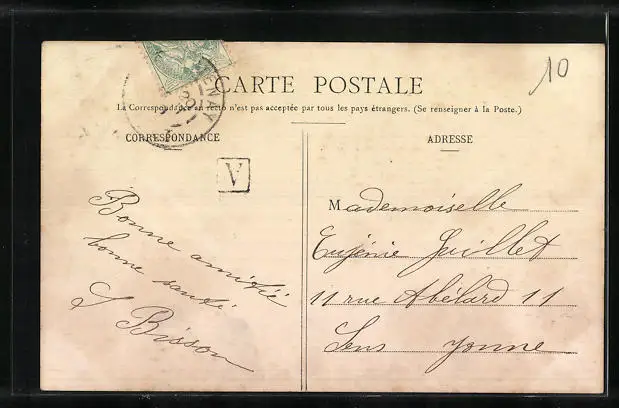 10
CARTE POSTALE
La Correspondance au recto n'est pas acceptée par tous les pays étrangers. (Se renseigner à la Poste.)
CORRESPONDANCE
ADRESSE
V
Bonne amitié
bonne santé
Bisson
Mademoiselle
Eugénie Guillet
11 rue Abélard 11
Sens Yonne